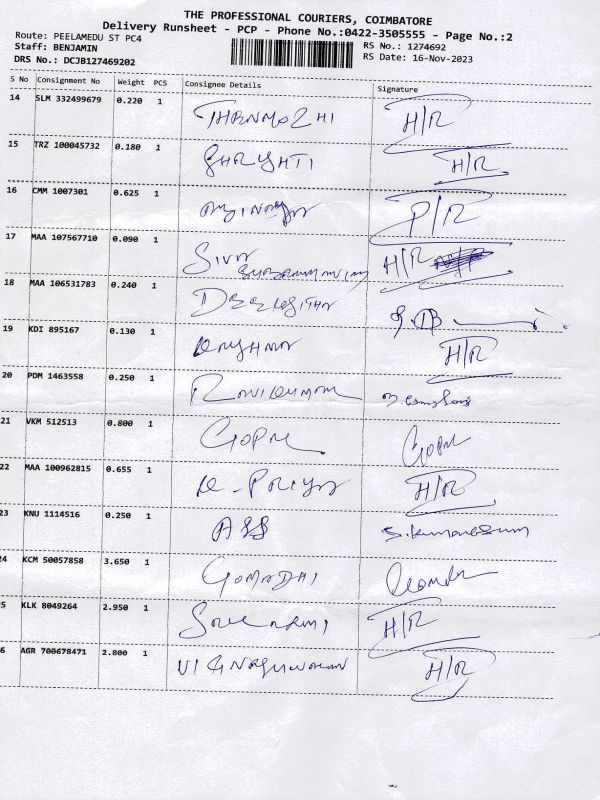 THE PROFESSIONAL COURIERS, COIMBATORE
Delivery Runsheet - PCP - Phone No.:0422-3505555 - Page No.:2
Route: PEELAMEDU ST PC4
Staff: BENJAMIN
RS No.: 1274692
DRS No.: DCJB127469202
RS Date: 16-Nov-2023
S No Consignment No Weight PCS Consignee Details Signature
14 SLM 332499679 0.220 1 THENMOZHI H/R
15 TRZ 100045732 0.180 1 H/R
16 CMM 1007301 0.625 1 P/R
17 MAA 107567710 0.090 1 SIVA H/R
18 MAA 106531783 0.240 1
19 KDI 895167 0.130 1 H/R
20 PDM 1463558 0.250 1 RAVIKUMAR
21 VKM 512513 0.800 1 GOPAL GOPAL
22 MAA 100962815 0.655 1 K-PRIYA H/R
23 KNU 1114516 0.250 1
24 KCM 50057858 3.650 1 GOMADHI
5 KLK 8049264 2.950 1 H/R
6 AGR 700678471 2.800 1 H/R